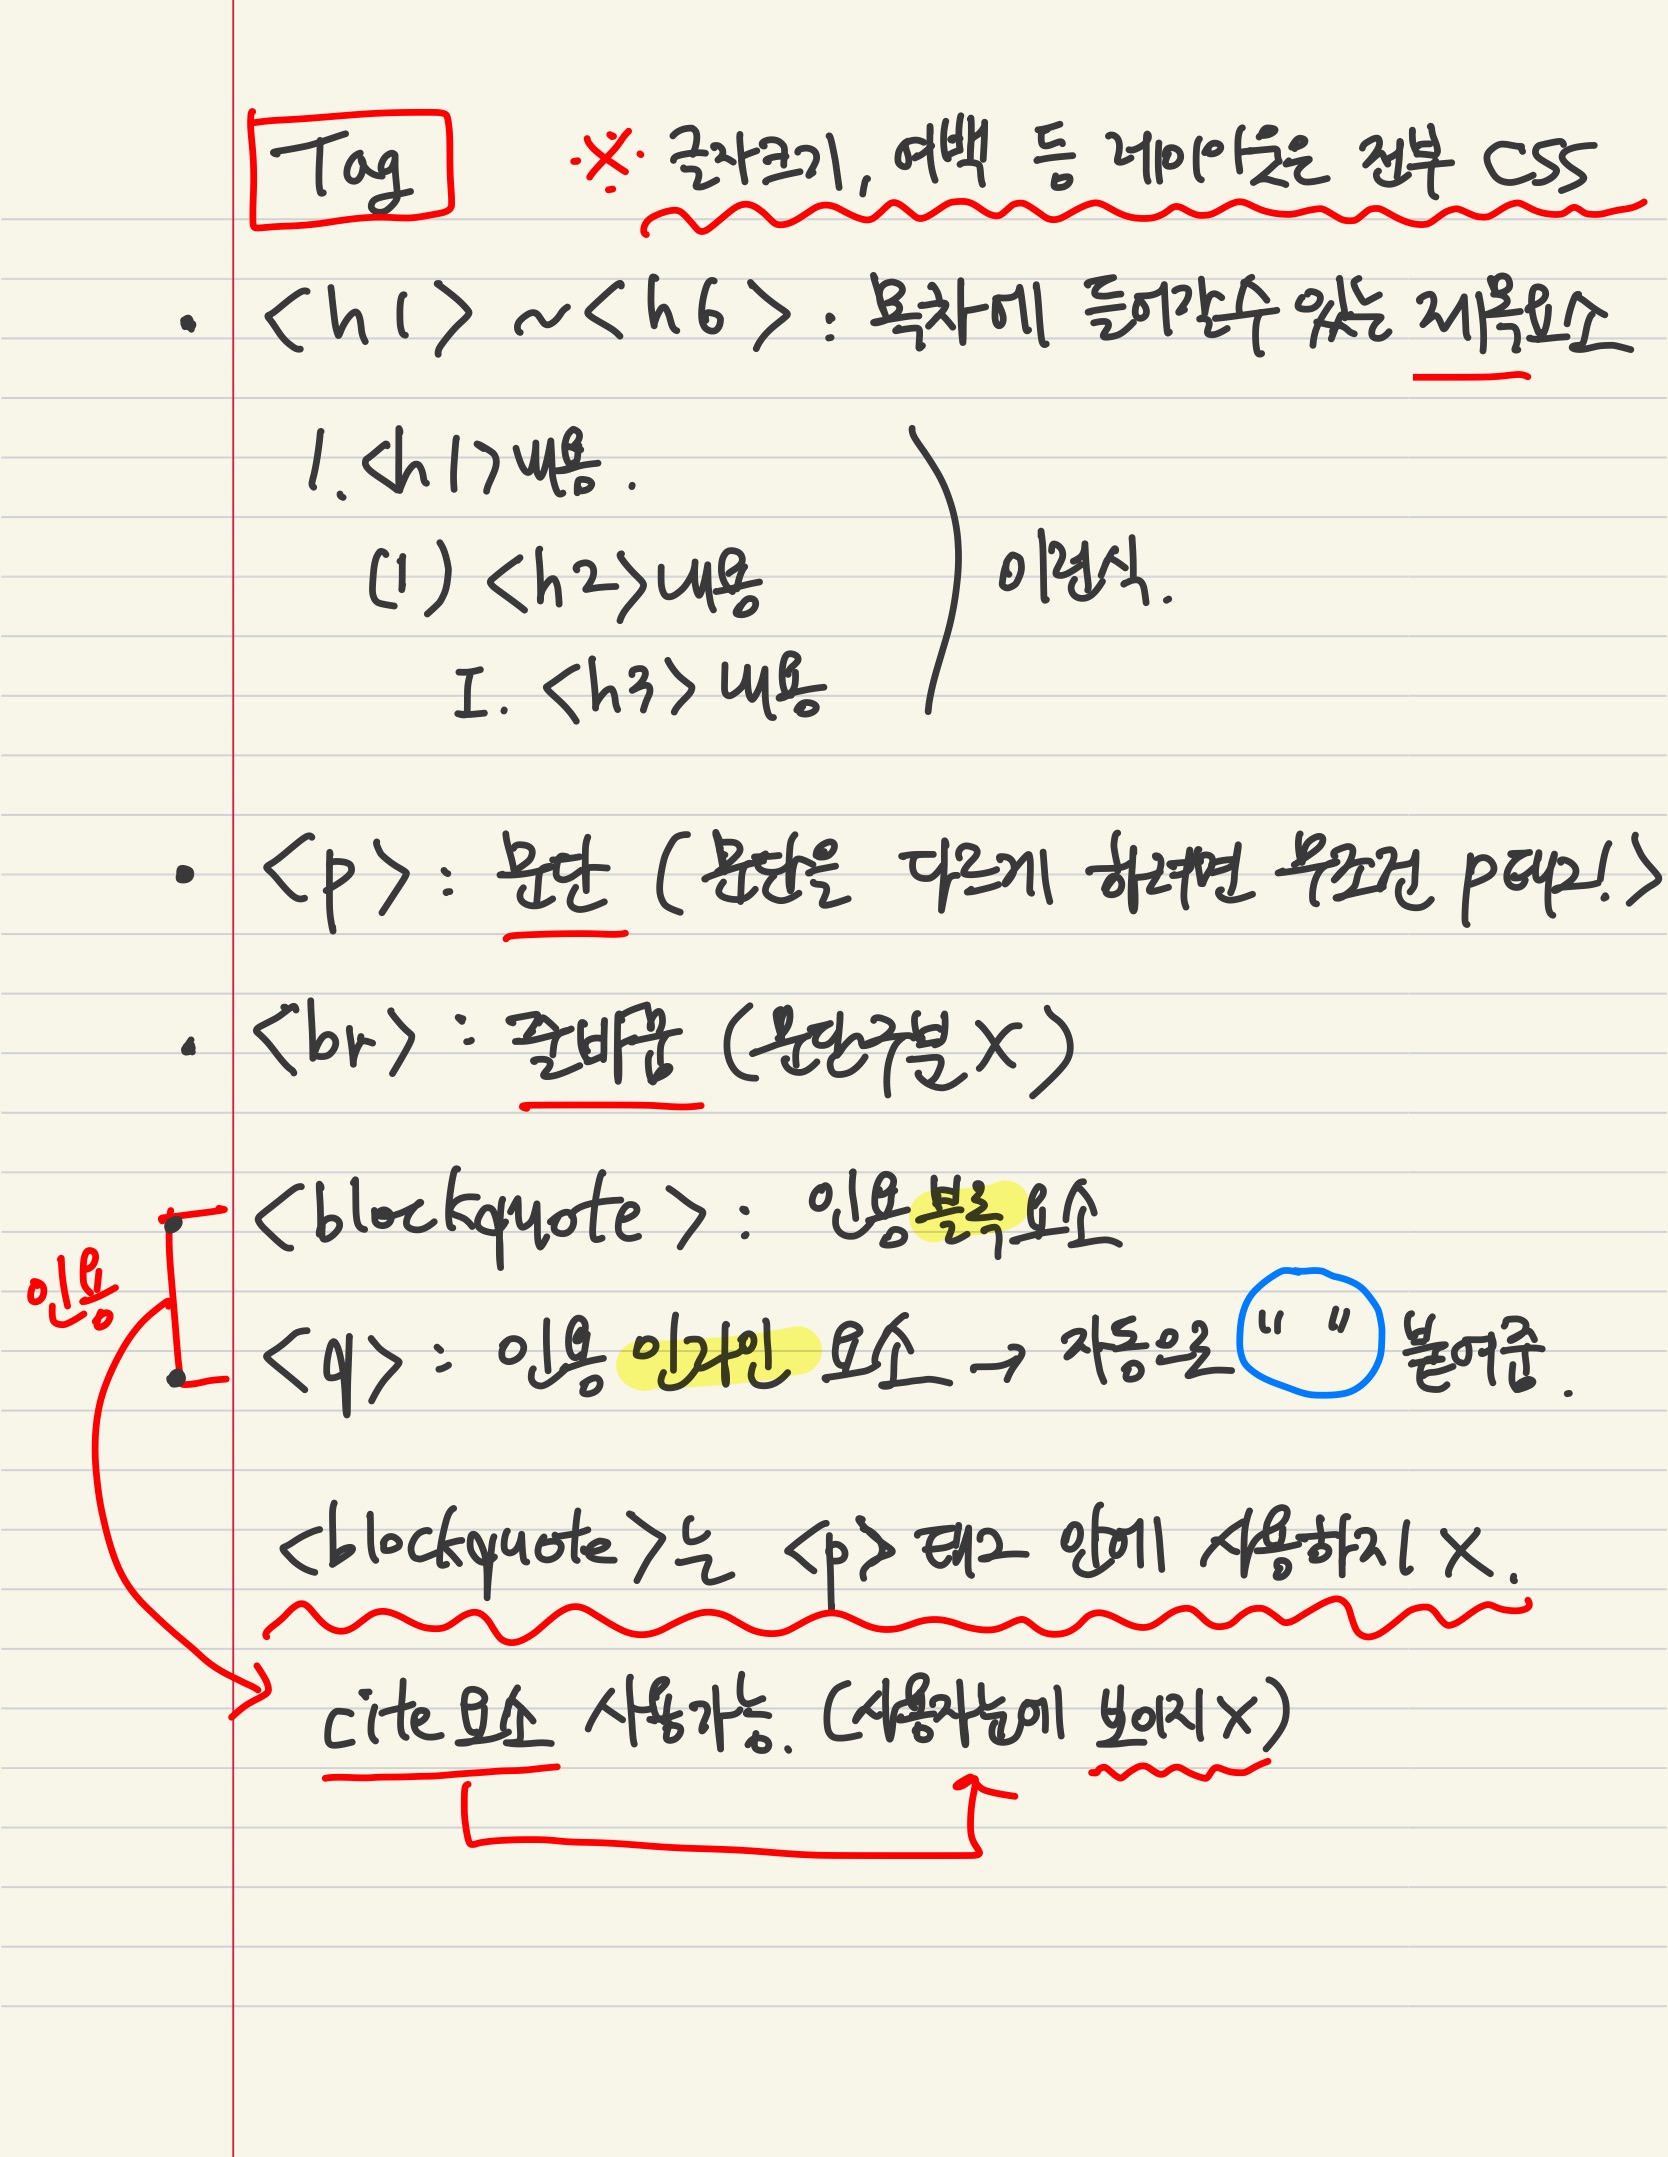 Tag ※ 글자크기, 여백 등 레이아웃은 전부 CSS
· <h1> ~ <h6> : 목차에 들어갈수 있는 제목요소
1. <h1> 내용.
(1) <h2> 내용
I. <h3> 내용
이런식.
· <p> : 문단 (문단을 다르게 하려면 무조건 p태그!>
· <br> : 줄바꿈 (문단구분X)
· <blockquote> : 인용블록요소
인용
· <q> : 인용 인라인 요소 → 자동으로 " " 붙어줌.
<blockquote>는 <p> 태그 안에 사용하지 X.
cite요소 사용가능. (사용자눈에 보이지X)